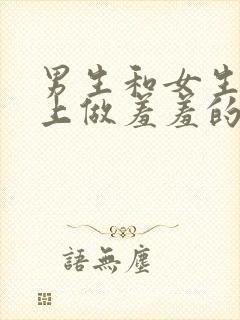 男生和女生
上做羞羞的
語無塵